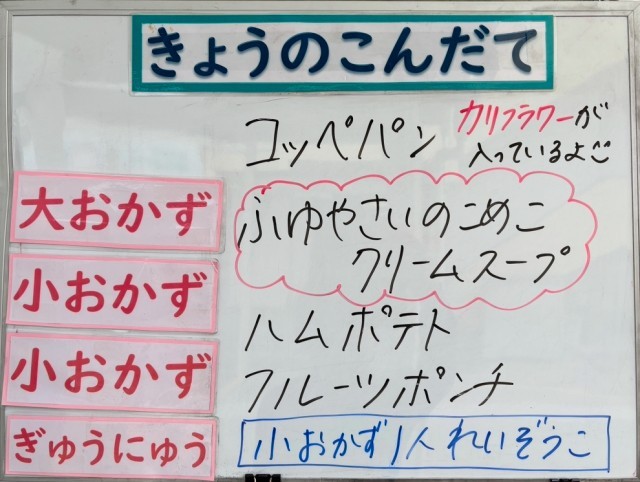 きょうのこんだて
コッペパン
カリフラワーが
入っているよ
大おかず
ふゆやさいのこめこ
クリームスープ
小おかず
ハムポテト
小おかず
フルーツポンチ
ぎゅうにゅう
小おかず1人れいぞうこ